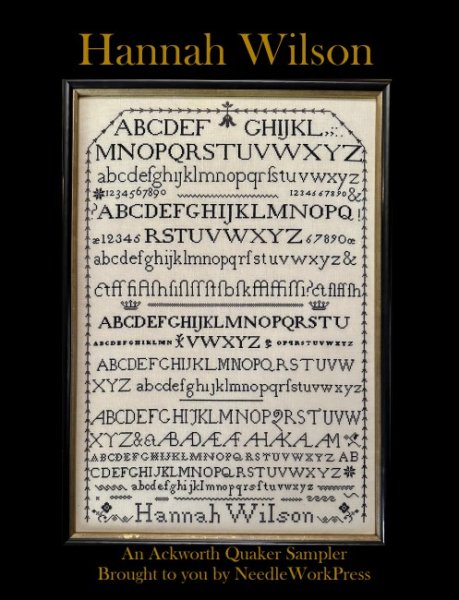 Hannah Wilson
ABCDEF GHIJKL,;:.
MNOPQRSTUVWXYZ
abcdefghijklmnopqrſstuvwxyz
1234567890 1234567890 &
?ABCDEFGHIJKLMNOPQ!
æ12345 RSTUVWXYZ 67890œ
abcdefghijklmnopqrſstuvwxyz&
ABCDEFGHIJKLMNOPQRSTU
ABCDEFGHIJKLMN VWXYZ OPQRSTUVWXYZ
ABCDEFGHIJKLMNOPQRSTUVW
XYZ abcdefghijklmnopqrſstuvwxyz
ABCDEFGHIJKLMNOPQRSTUVW
XYZ&
ABCDEFGHIJKLMNOPQRSTUVWXYZ AB
CDEFGHIJKLMNOPQRSTUVWXYZ
abcdefghijklmnopqrſstuvwxyz
Hannah Wilson
An Ackworth Quaker Sampler
Brought to you by NeedleWorkPress